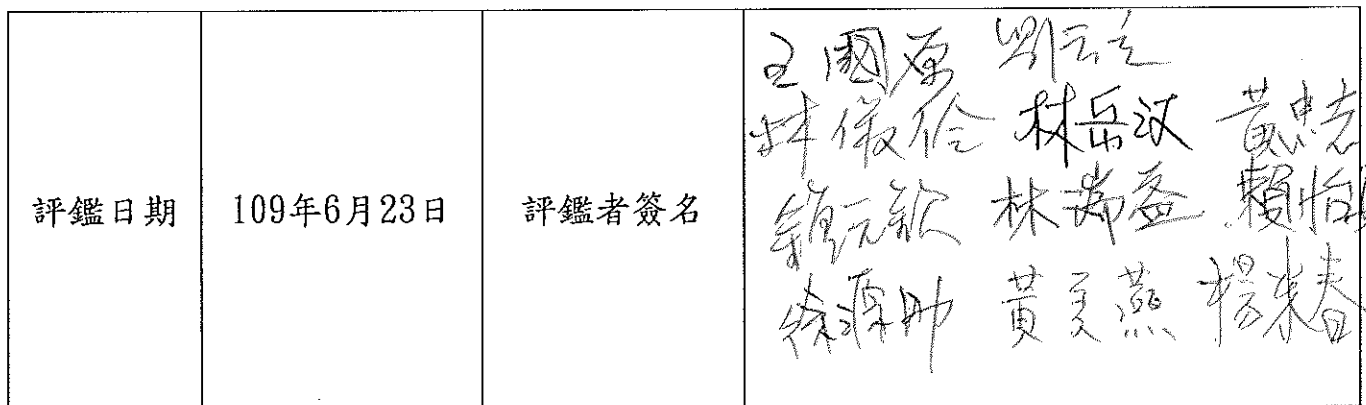 評鑑日期
109年6月23日
評鑑者簽名
王國原
林俊伶 林岳汶 黃忠志
林瑞益 賴怡
徐源助 黃美燕 楊榮春